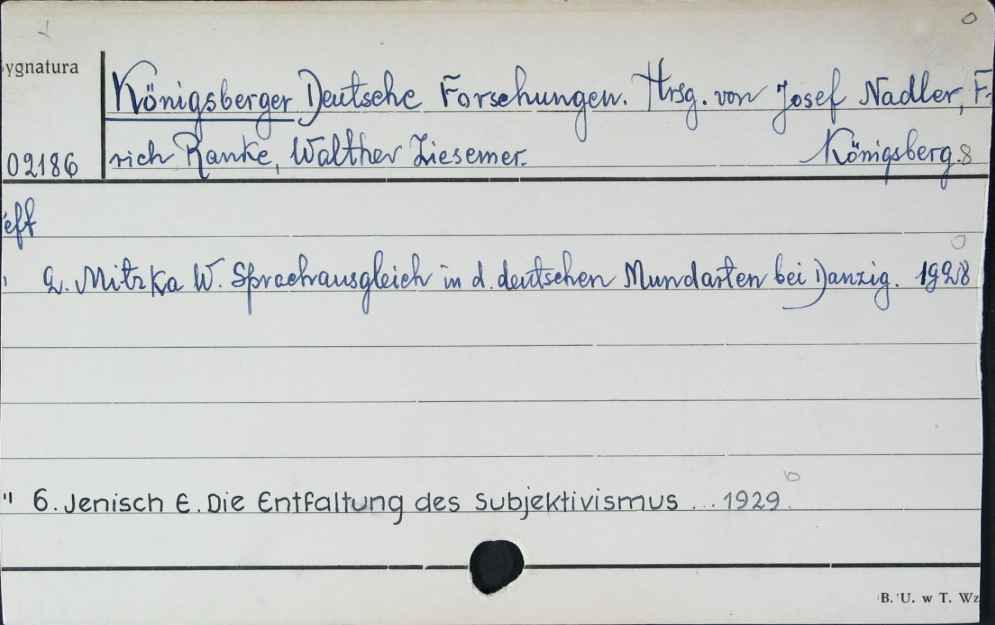 ygnatura
Königsberger Deutsche Forschungen. Hrsg. von Josef Nadler, F.
02186
rich Ranke, Walther Ziesemer. Königsberg. 8
eft
" 2. Mitzka W. Sprachausgleich in d. deutschen Mundarten bei Danzig. 1928
" 6. Jenisch E. Die Entfaltung des Subjektivismus ... 1929.
B. U. w T. Wz